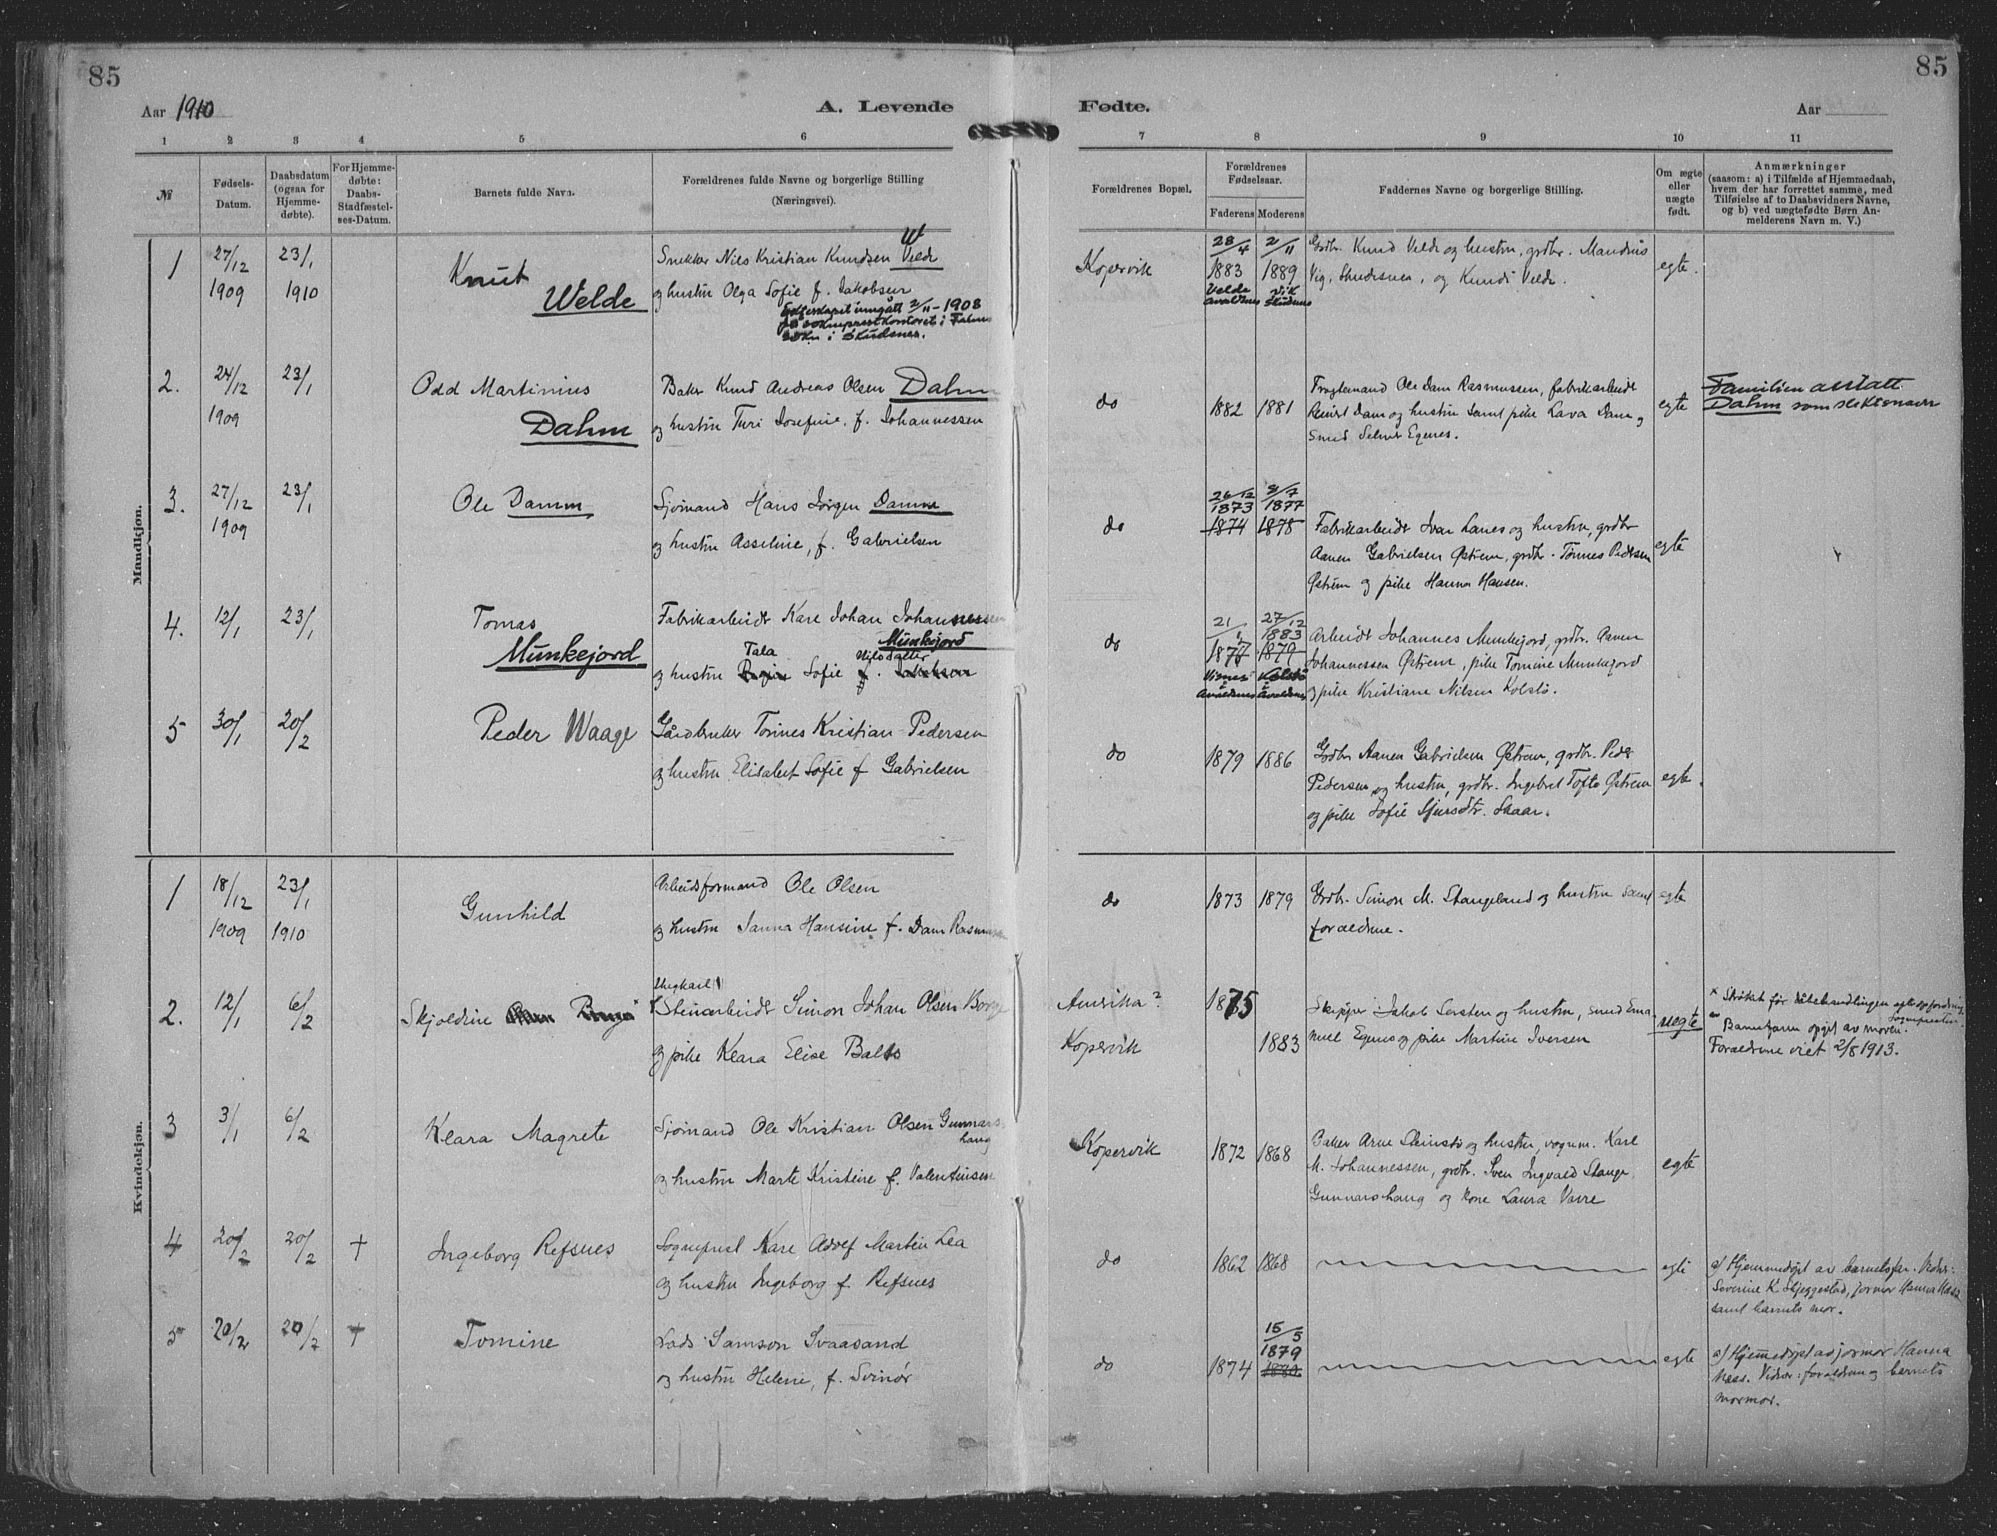 85
85
Aar 1910
A. Levende
Fødte.
Aar
1 2 3 4 5 6 7 8 9 10 11
№
Fødsels-
Datum.
Daabsdatum
(ogsaa for
Hjemme-
døbte).
For Hjemme-
døbte:
Daabs-
Stadfæstel-
ses-Datum.
Barnets fulde Navn.
Forældrenes fulde Navne og borgerlige Stilling
(Næringsvei).
Forældrenes Bopæl.
Forældrenes
Fødselsaar.
Faderens Moderens
Faddernes Navne og borgerlige Stilling.
Om ægte
eller
uægte
født.
Anmærkninger
(saasom: a) i Tilfælde af Hjemmedaab,
hvem der har forrettet samme, med
Tilføielse af to Daabsvidners Navne,
og b) ved uægtefødte Børn An-
melderens Navn m. V.)
Mandkjøn.
1
27/12
1909
23/1
1910
Knut
Welde
W
Snekker Nils Kristian Knudsen Velde
og hustru Olga Sofie f. Jakobsen
Ekteskapet inngått 2/11-1908
på sokneprestkontoret i Falnes
sokn i Skudenes.
Kopervik
28/4
1883
Velde
Avaldsnes
2/11
1889
Vik
Skudenes
Grdbr. Knud Velde og hustru, grdbr. Mandrius
Vig, Skudesnes, og Knud Velde.
egte.
2.
24/12
1909
23/1
Odd Martinius
Dahm
Baker Knud Andreas Olsen Dahm
og hustru Turi Josefine, f. Johannessen
do
1882 1881
Ole Dam Rasmussen, fabrikarbeider
Dam og hustru samt pike Lava Dam og
Smed Selmer Egenes.
egte
Familien antatt
Dahm som slektsnavn
3.
27/12
1909
23/1
Ole Damm
Sjømand Hans Jørgen Damm
og hustru Asseline, f. Gabrielsen
do
26/12
1873
1874
8/7
1877
1875
Fabrikarbeider Ivar Lanes og hustru, grdbr
Aanen Gabrielsen Østrem, grdbr. Tønnes Pedersen
Østrem og pike Hanna Hansen.
egte
4.
12/1
23/1
Tomas
Munkejord
Fabrikarbeider Karl Johan Johannessen
Munkejord
Tala Nilsdatter
og hustru Sofie f. Jakobsen
do
21
187
Avaldsnes
27/12
1883
1879
Kolstø
Avaldsnes
Arbeider Johannes Munkejord, grdbr. Aanen
Johannessen Østrem, pike Tomine Munkejord
og pike Kristiane Nilsen Kolstø.
5
30/1
20/2
Peder Waage
Gårdbruker Tønnes Kristian Pedersen
og hustru Elisabet Sofie f Gabrielsen
do
1879 1886
Grdbr Aanen Gabrielsen Østrem, grdbr. Peder
Pedersen og hustru, grdbr. Ingebret Tofte Østrem
og pike Sofie Sjursdtr. Skaar.
egte.
Kvindekjøn.
1
18/12
1909
23/1
1910
Gunhild
Arbeidsformand Ole Olsen
og hustru Janna Hansine f. Dam Rasmussen
do
1873 1879
Grdbr. Simon M. Stangeland og hustru samt
foraeldrene.
egte
2.
12/1
6/2
Skjoldine Olsen
Ungkarl
Stenarbeider Simon Johan Olsen Borge
og pike Klara Elise Balto
Amerika?
Kopervik
1875
1883
Skipper Jakob Torsten og hustru, smed Ema-
nuel Egenes og pike Martine Iversen
uegte
x Strøket før efter opfordring
Sogneprest
Barnefaren opgit av moren.
Foraeldrene viet 2/8 1913.
3
3/1
6/2
Klara Magrete
Sjømand Ole Kristian Olsen Gunnars-
haug
og hustru Marte Kristine f. Valentinsen
Kopervik
1872 1868
Baker Arne Steinstø og hustru, vognm. Karl
M. Johannessen, grdbr. Sven Ingvald Stange
Gunnarshaug og kone Laura Vaare
egte
4
20/2
20/2
+
Ingeborg Refsnes
Sogneprest Kare Adolf Martin Lea
og hustru Ingeborg f. Refsnes
do
1862 1868
egte
a) Hjemmedøpt av barnets far. Vidner:
Severine K. Skjeggestad, jormor Hanna Næss
samt barnets mor.
5
20/2
20/2
+
Tomine
Lods Samson Svaasand
og hustru Helene, f. Svinør
do
1874
15/5
1879
1880
egte
a) Hjemmedøpt av jormor Hanna
Næss. Vidner: foraeldrene og barnets
mormor.